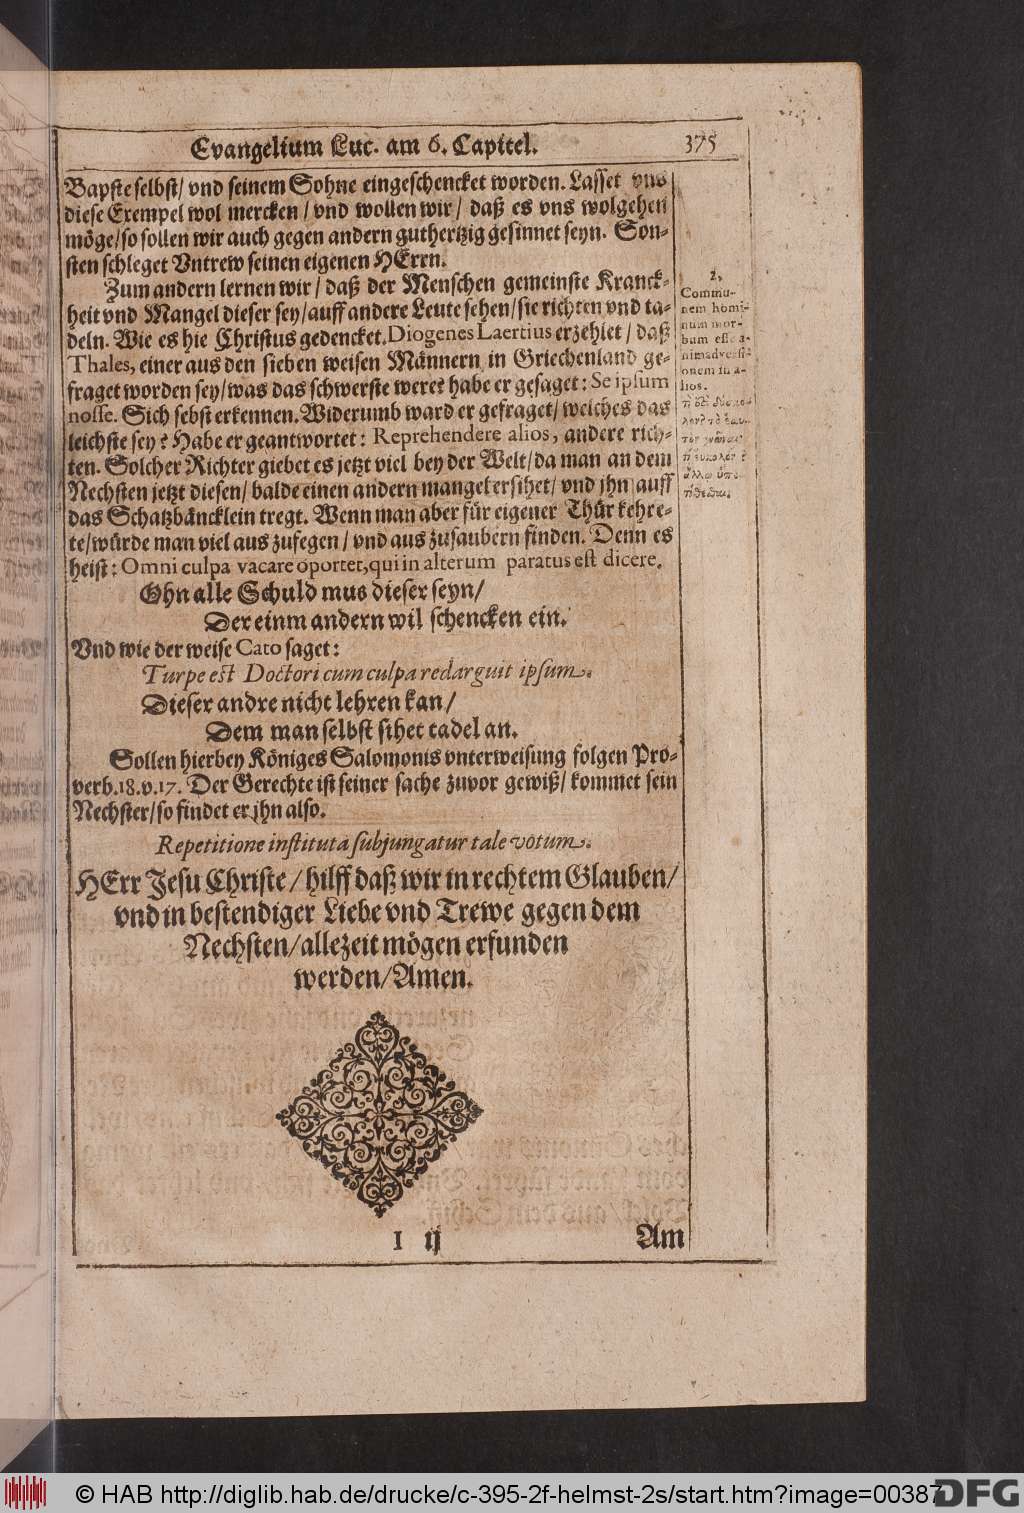 Evangelium Luc. am 6. Capitel. 375
Bapste selbst/ vnd seinem Sohne eingeschencket worden. Lasset vns
diese Exempel wol mercken/ vnd wollen wir/ daß es vns wolgehen
möge/ so sollen wir auch gegen andern guthertzig gesinnet seyn. Son-
sten schleget Vntrew seinen eigenen HErrn.
Zum andern lernen wir/ daß der Menschen gemeinste Kranck-
heit vnd Mangel dieser sey/ auff andere Leute sehen/ sie richten vnd ta-
deln. Wie es hie Christus gedencket. Diogenes Laertius erzehlet/ daß
Thales, einer aus den sieben weisen Männern in Griechenland ge-
fraget worden sey/ was das schwerste were? habe er gesaget: Se ipsum
nosse. Sich sebst erkennen. Widerumb ward er gefraget/ welches das
leichste sey? Habe er geantwortet: Reprehendere alios, andere rich-
ten. Solcher Richter giebet es jetzt viel bey der Welt/ da man an dem
Nechsten jetzt diesen/ balde einen andern mangel ersihet/ vnd jhn auff
das Schatzbäncklein tregt. Wenn man aber für eigener Thür kehre-
te/ würde man viel aus zufegen/ vnd aus zusaubern finden. Denn es
heist: Omni culpa vacare oportet, qui in alterum paratus est dicere.
Ohn alle Schuld mus dieser seyn/
Der einm andern wil schencken ein.
Vnd wie der weise Cato saget:
Turpe est Doctori cum culpa redarguit ipsum.
Dieser andre nicht lehren kan/
Dem man selbst sihet tadel an.
Sollen hierbey Königes Salomonis vnterweisung folgen Pro-
verb. 18. v. 17. Der Gerechte ist seiner sache zuvor gewiß/ kommet sein
Nechster/ so findet er jhn also.
Repetitione instituta subjungatur tale votum.
HErr Jesu Christe/ hilff daß wir in rechtem Glauben/
vnd in bestendiger Liebe vnd Trewe gegen dem
Nechsten/ allezeit mögen erfunden
werden/ Amen.
I ij Am
2.
Commu-
nem homi-
num mor-
bum esse a-
nimadversi-
onem in a-
lios.
© HAB http://diglib.hab.de/drucke/c-395-2f-helmst-2s/start.htm?image=00387
DFG